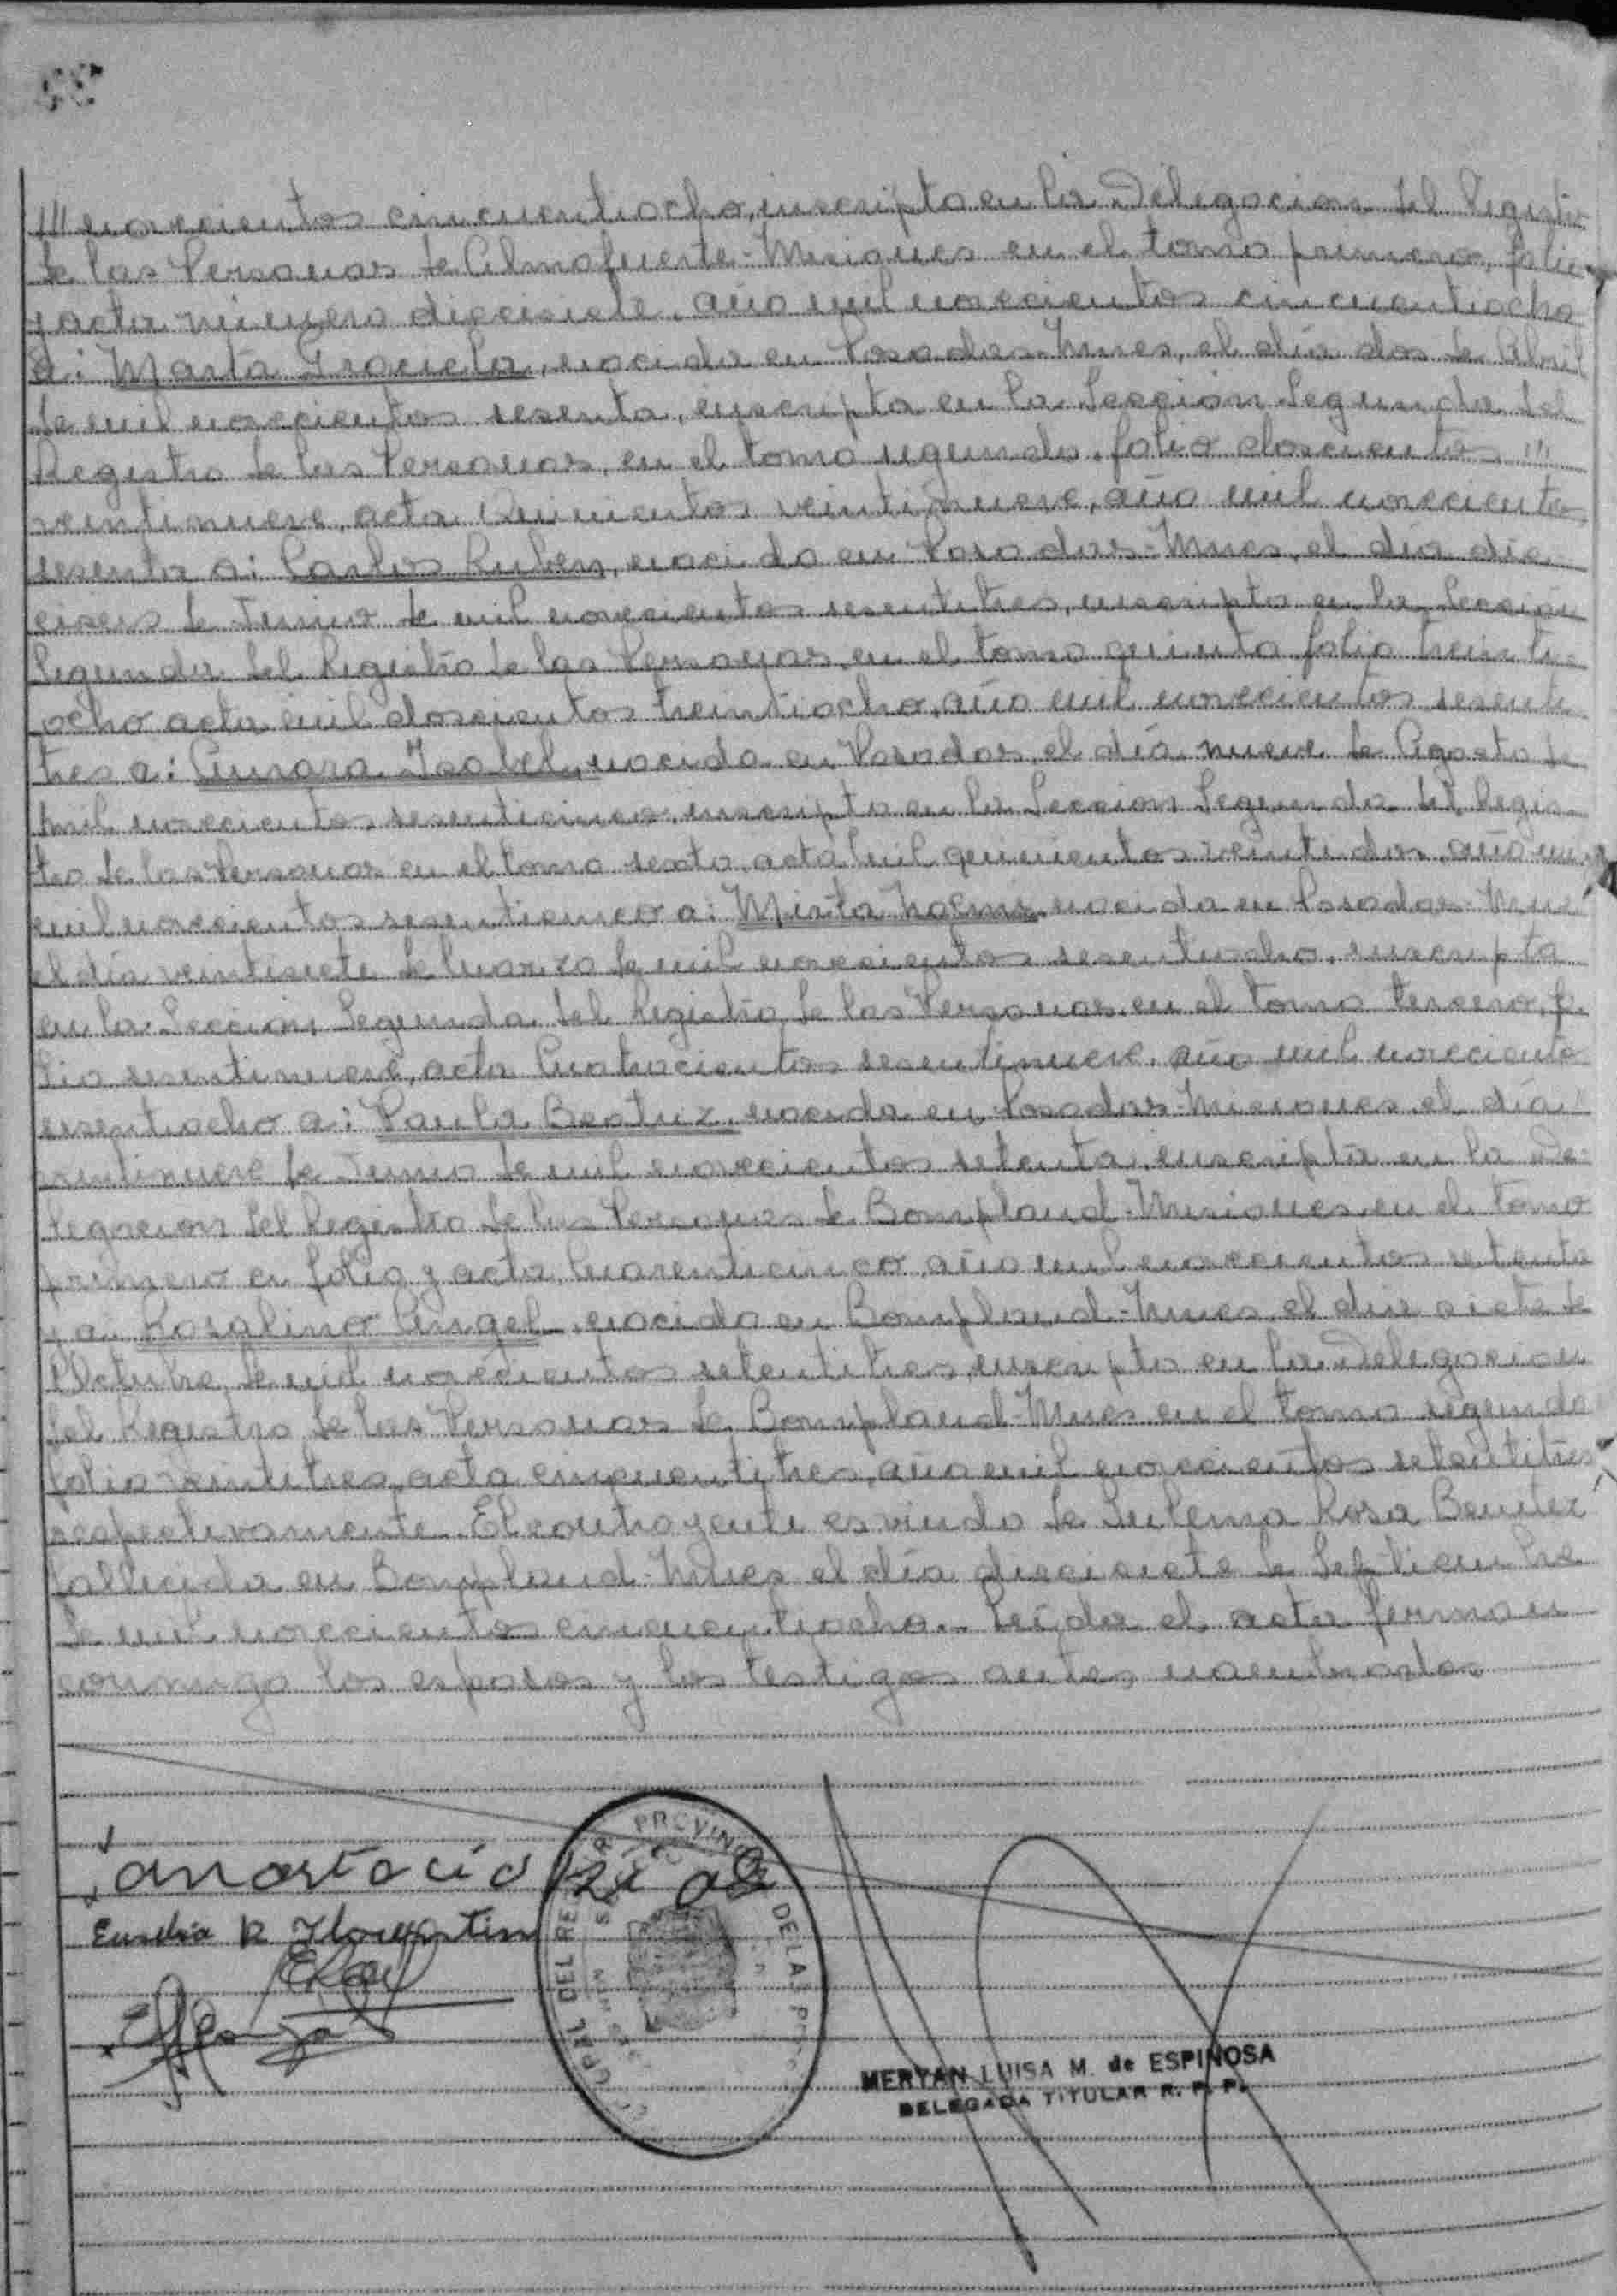 /// novecientos cincuentiocho, inscripto en la Delegacion del Registro
de las Personas de Almafuerte-Misiones en el tomo primero, folio
y acta número diecisiete, año mil novecientos cincuentiocho
a: Marta Graciela, nacida en Posadas-Mnes, el día dos de Abril
de mil novecientos sesenta, inscripta en la Sección Segunda del
Registro de las Personas, en el tomo segundo, folio doscientos ///
veintinueve, acta Quinientos veintinueve, año mil novecientos
sesenta a: Carlos Ruben, nacido en Posadas-Mnes, el día die
ciseis de Junio de mil novecientos sesentitres, inscripto en la Sección
Segunda del Registro de las Personas, en el tomo quinto folio treinti-
ocho acta mil doscientos treintiocho, año mil novecientos sesenti
tres a: Isabel, nacida en Posadas, el día nueve de Agosto de
mil novecientos sesenticinco, inscripta en la Sección Segunda del Regis-
tro de las Personas en el tomo sexto, acta mil quinientos veintidos, año
mil novecientos sesenticinco a: Mirta Noemi nacida en Posadas-Mnes
el día veintisiete de Marzo de mil novecientos sesentiocho, inscripta
en la Sección Segunda del Registro de las Personas, en el tomo tercero, fo-
lio sesentinueve, acta Cuatrocientos sesentinueve, año mil novecientos
sesentiocho a: Paula Beatriz, nacida en Posadas-Misiones el día
veintinueve de Junio de mil novecientos setenta, inscripta en la De-
legacion del Registro de las Personas de Bompland-Misiones, en el tomo
primero en folio y acta Cuarenticinco, año mil novecientos setenta
y a: Rosalino Angel, nacido en Bompland-Mnes, el dia siete de
Octubre de mil novecientos setentitres, inscripto en la Delegacion
del Registro de las Personas de Bompland-Mnes en el tomo segundo
folio veintitres, acta cincuentitres, año mil novecientos setentitres
respectivamente. El contrayente es viudo de Sulema Rosa Benitez
fallecida en Bompland-Mnes el día diecisiete de Septiembre
de mil novecientos cincuentiocho.- Leída el acta firman
conmigo los esposos y los testigos antes nombrados
anastacio
Eusebia R Florentin
PROVIN DE LAS
MERYAN LUISA M. de ESPINOSA
DELEGADA TITULAR R. P. P.